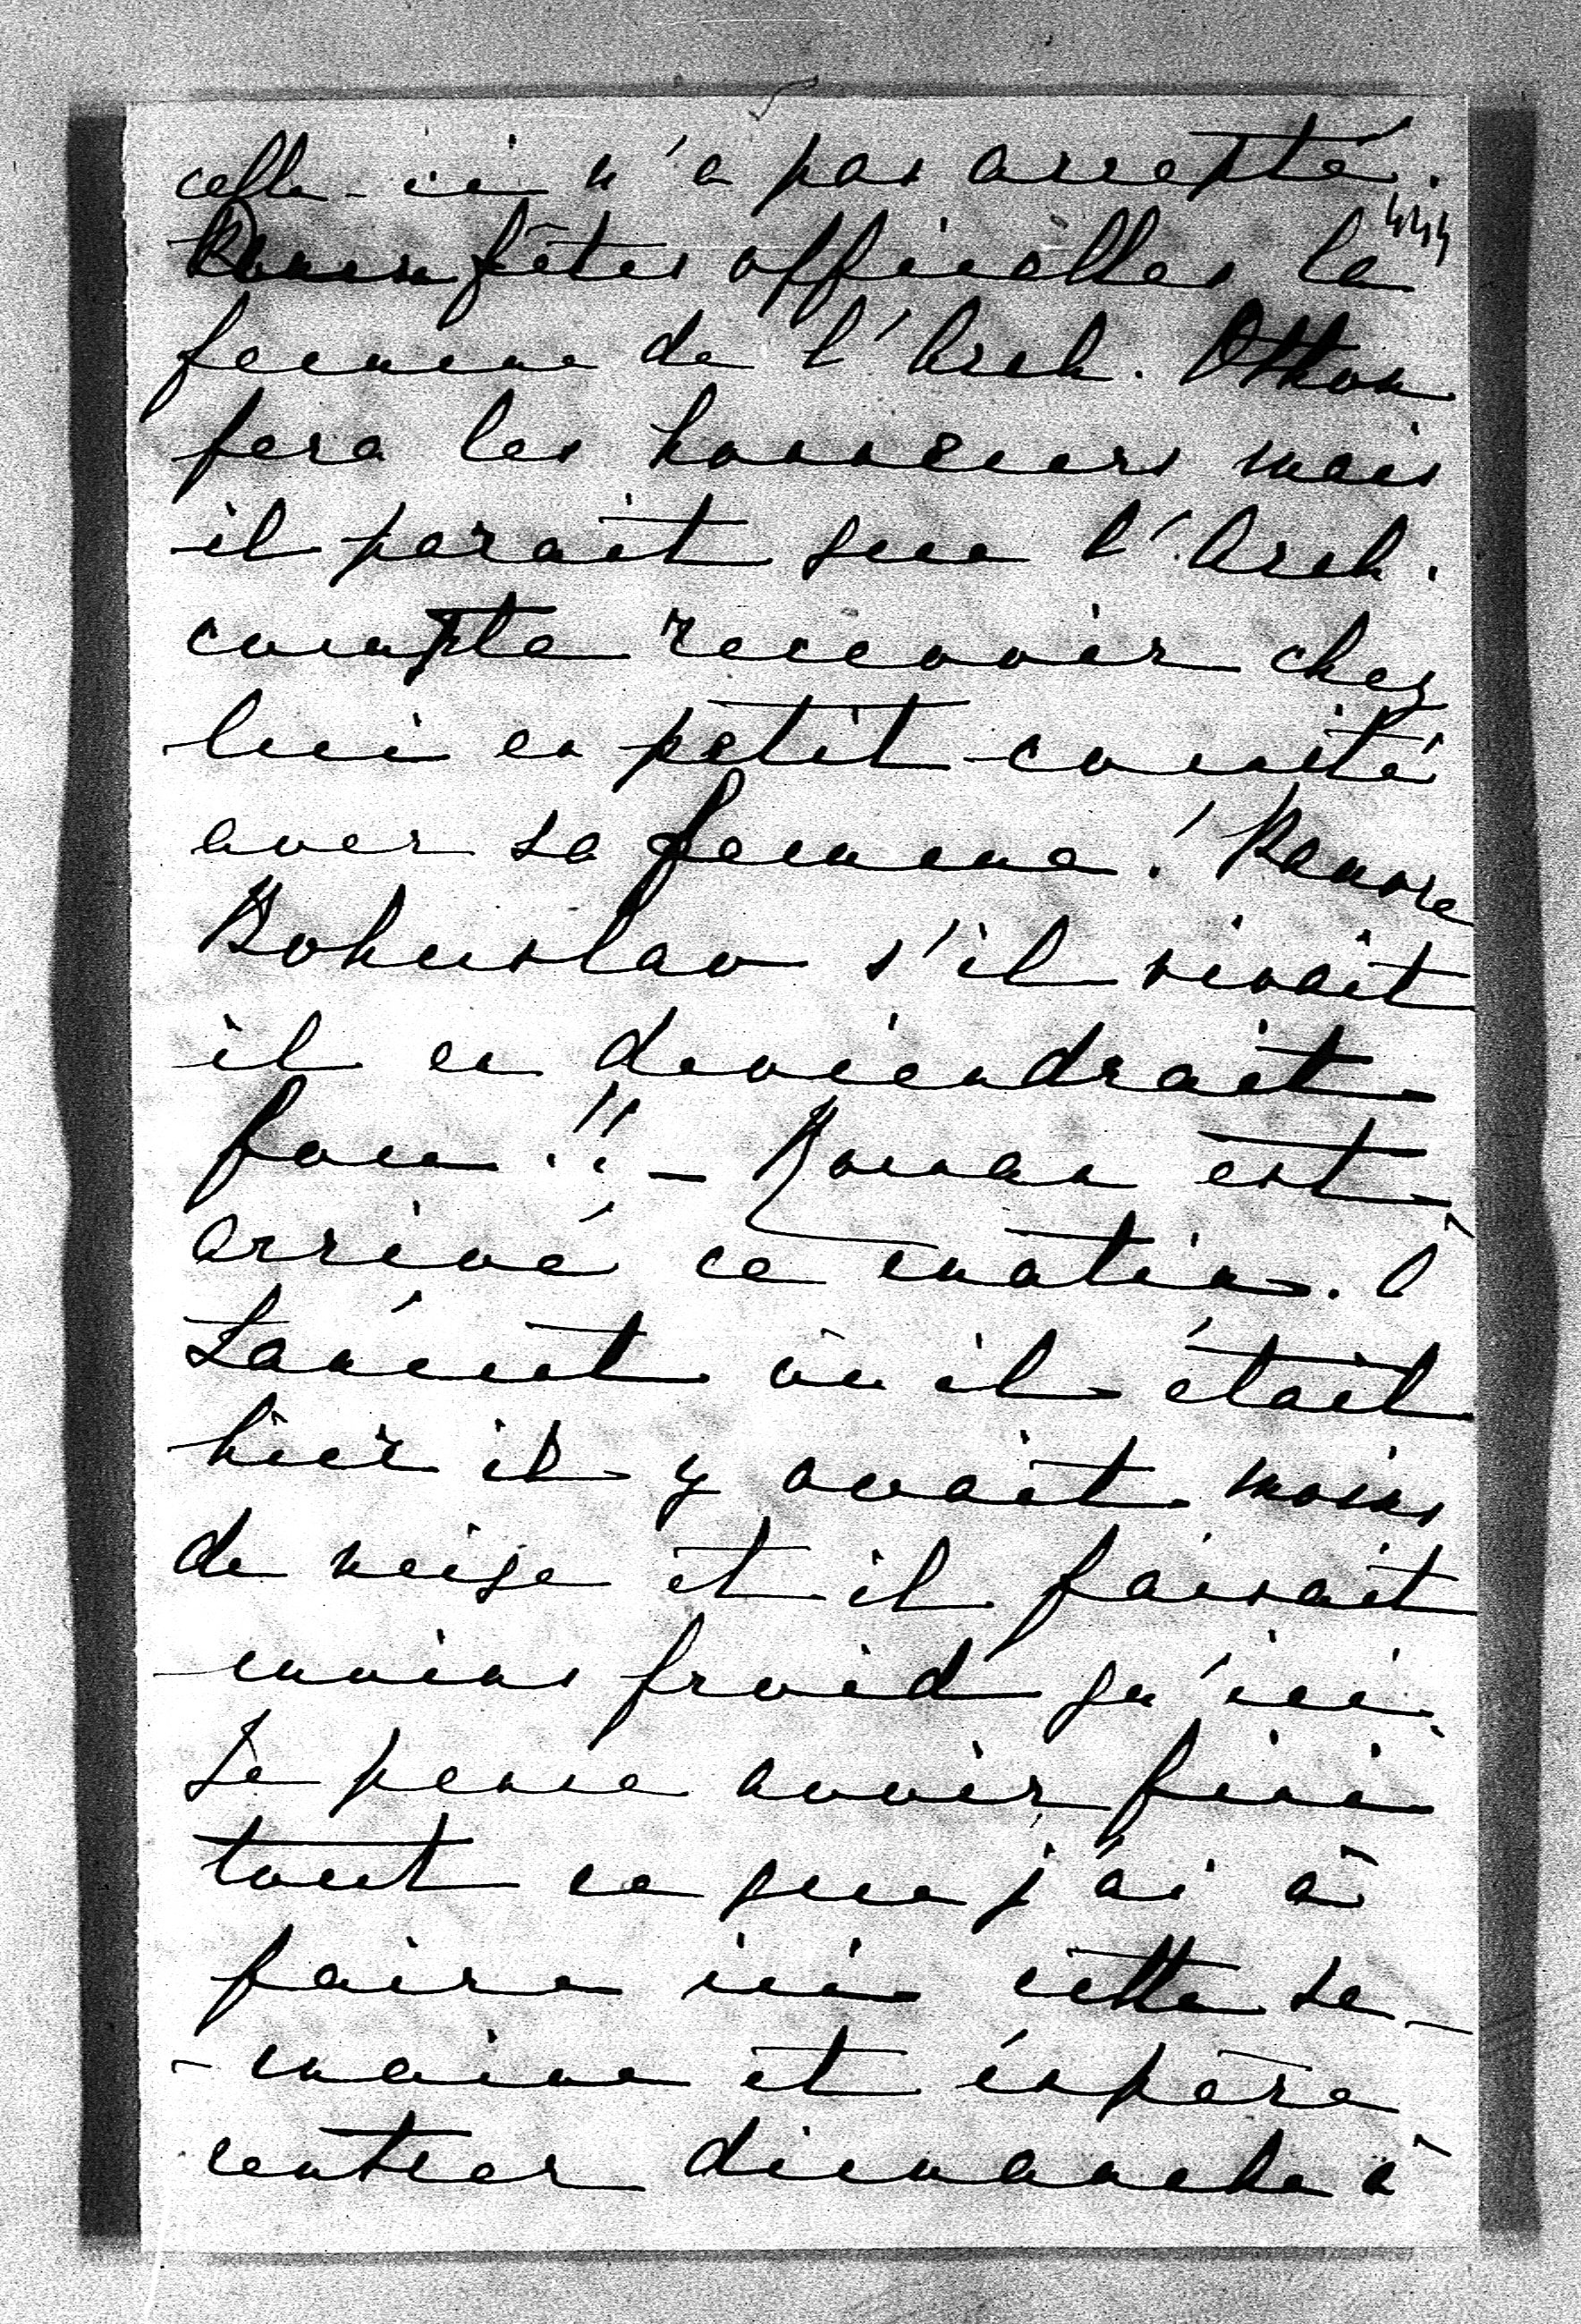 celle-ci n'a pas accepté.
444
fêtes officielles la
femme de l'Arch. Otton
fera les honneurs mais
il parait que l'Arch.
compte recevoir chez
lui en petit comité
avec sa femme! Pauvre
Bohuslav s'il vivait
il en deviendrait
fou!!! – Roman est
arrivé ce matin. À
Łańcut où il était
hier il y avait moins
de neige et il faisait
moins froid qu'ici.
Je pense avoir fini
tout ce que j'ai à
faire ici cette se-
-maine et éspère
rentrer dimanche à